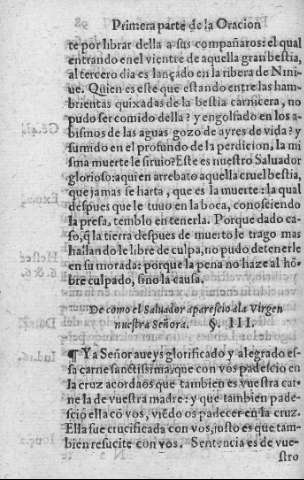 Primera parte de la Oracion
te por librar della a sus compañaros: el qual
entrando en el vientre de aquella gran bestia,
al tercero dia es lançado en la ribera de Nini-
ue. Quien es este que estando entre las ham-
brientas quixadas de la bestia carnicera, no
pudo ser comido della? y engolfado en los a-
bismos de las aguas gozo de ayres de vida? y
sumido en el profundo de la perdicion, la mi
sma muerte le siruio? Este es nuestro Saluador
glorioso: a quien arrebato aquella cruel bestia,
que jamas se harta, que es la muerte: la qual
despues que le tuuo en la boca, conosciendo
la presa, temblo en tenerla. Porque dado ca-
so, q̃ la tierra despues de muerto le trago mas
hallandole libre de culpa, no pudo detenerle
en su morada: porque la pena no haze al hō-
bre culpado, sino la causa.
De como el Saluador aparescio a la Virgen
nuestra Señora. §. III.
¶ Ya Señor aueys glorificado y alegrado es-
sa carne sanctissima, que con vos padescio en
la cruz acordaos que tambien es vuestra car-
ne la de vuestra madre: y que tambien pade-
scio ella cō vos, viēdo os padecer en la cruz.
Ella fue crucificada con vos, justo es que tam-
bien resucite con vos. Sentencia es de vue-
stro